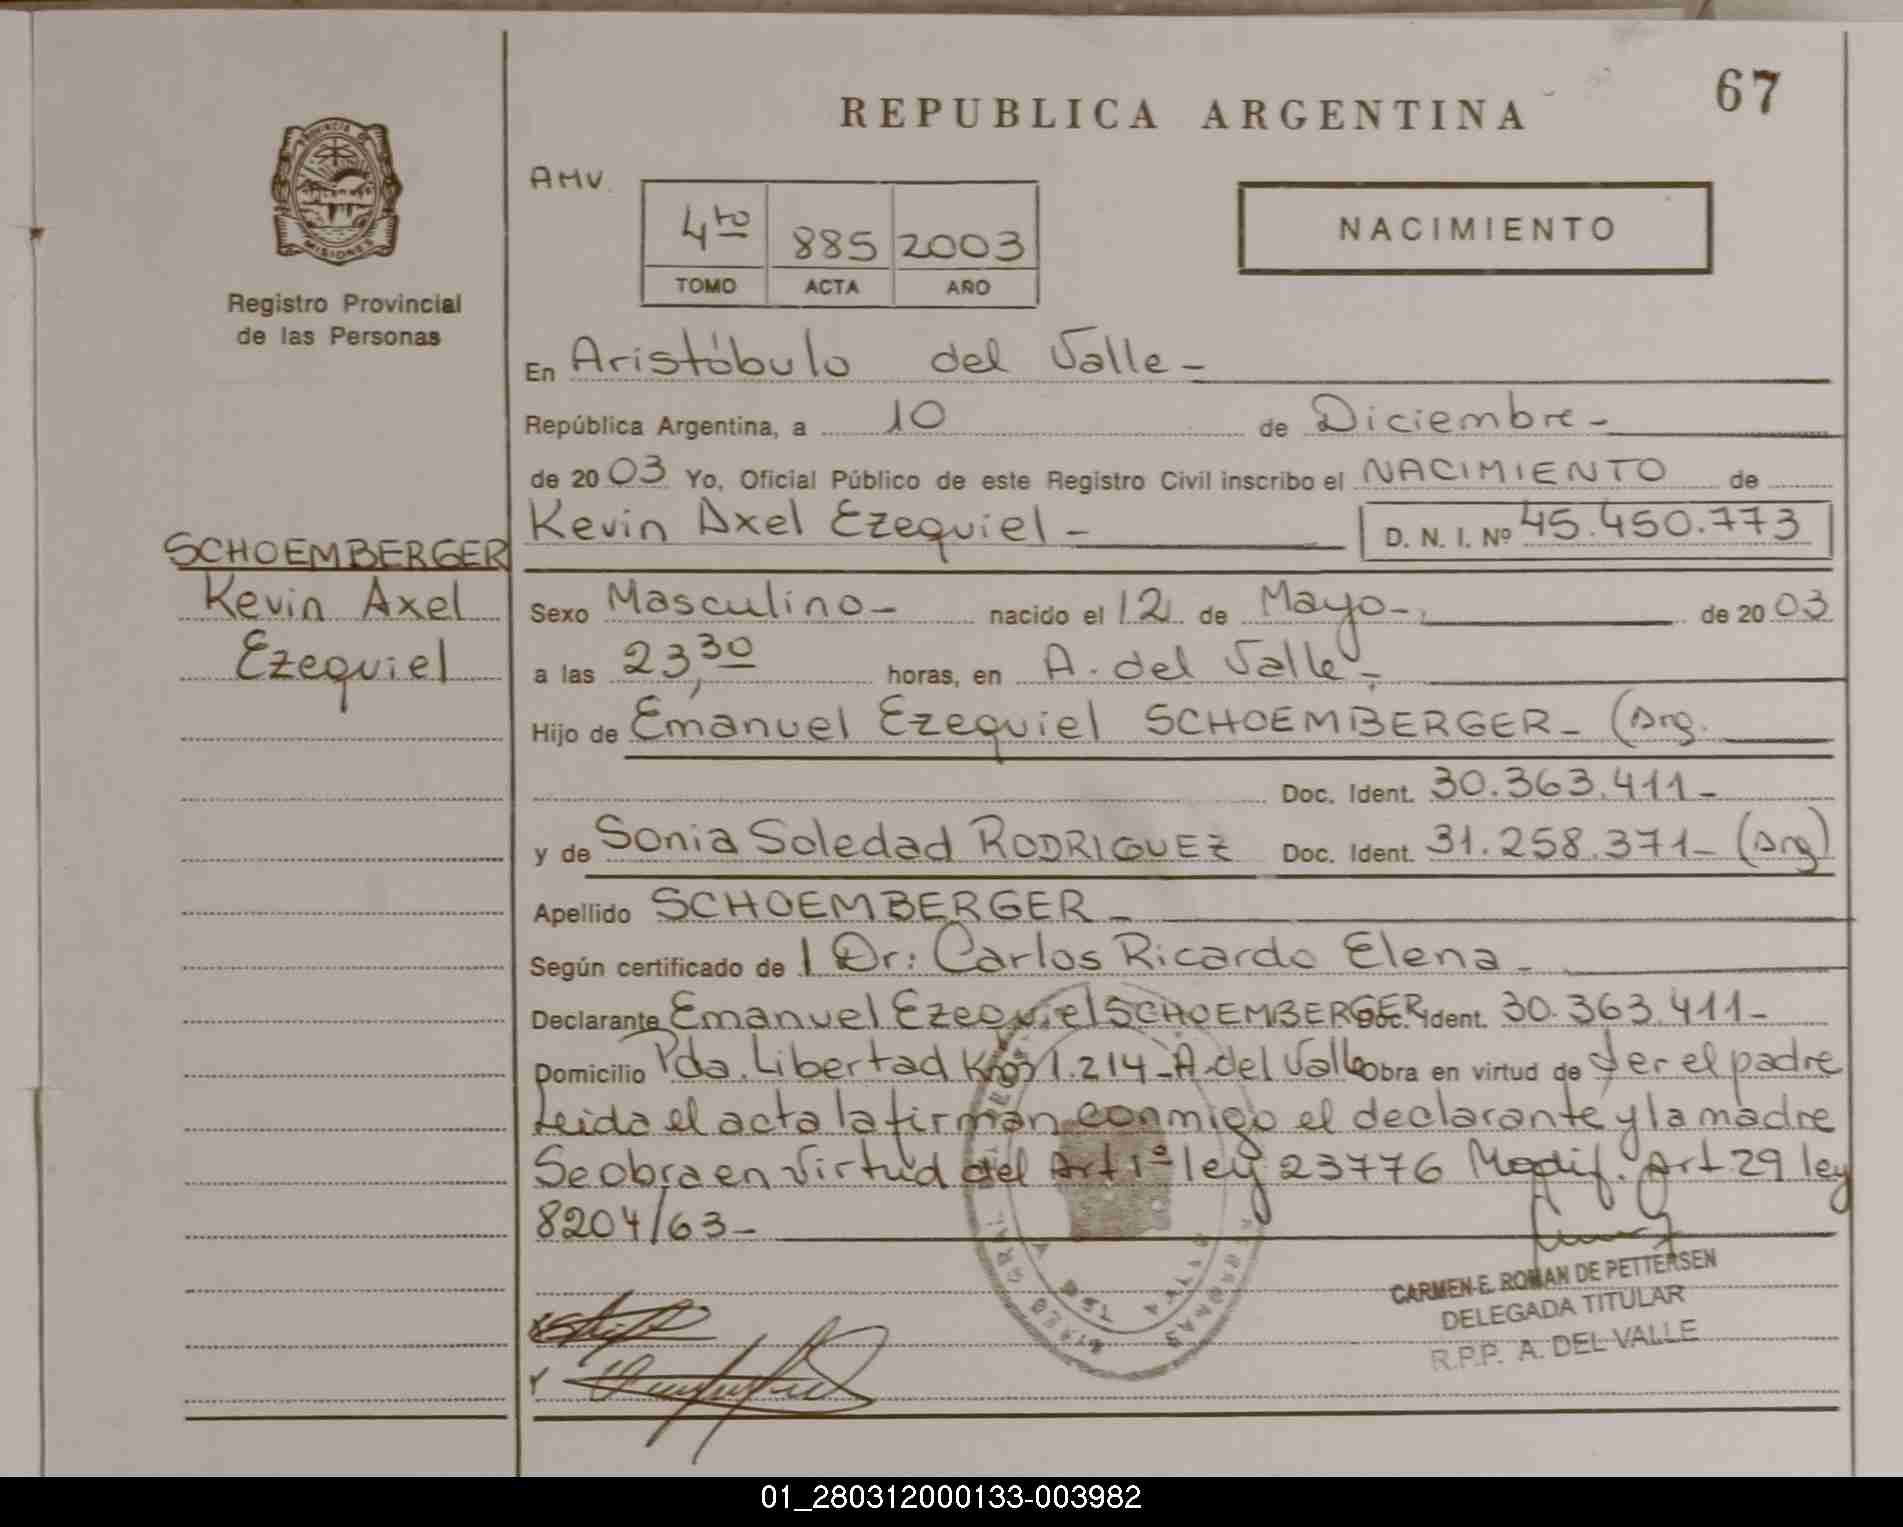 67
REPUBLICA ARGENTINA
PROVINCIA DE
MISIONES
Registro Provincial
de las Personas
AMV.
4to 885 2003
TOMO ACTA AÑO
NACIMIENTO
En Aristóbulo del Valle -
República Argentina, a 10 de Diciembre -
de 2003 Yo, Oficial Público de este Registro Civil inscribo el NACIMIENTO de
Kevin Axel Ezequiel - D. N. I. Nº 45.450.773
SCHOEMBERGER
Kevin Axel
Ezequiel
Sexo Masculino - nacido el 12 de Mayo - de 2003
a las 23,30 horas, en A. del Valle -
Hijo de Emanuel Ezequiel SCHOEMBERGER - (Arg.
Doc. Ident. 30.363.411 -
y de Sonia Soledad RODRIGUEZ Doc. Ident. 31.258.371 - (Arg)
Apellido SCHOEMBERGER -
Según certificado de l Dr: Carlos Ricardo Elena -
Declarante Emanuel Ezequiel SCHOEMBERGER Doc. Ident. 30.363.411 -
Domicilio Pda. Libertad Km 1.214 - A. del Valle Obra en virtud de Ser el padre
Leida el acta la firman conmigo el declarante y la madre
Se obra en virtud del Art 1º ley 23776 Modif. Art. 29 ley
8204/63 -
CARMEN E. ROMAN DE PETTERSEN
DELEGADA TITULAR
R.P.P. A. DEL VALLE
01_280312000133-003982